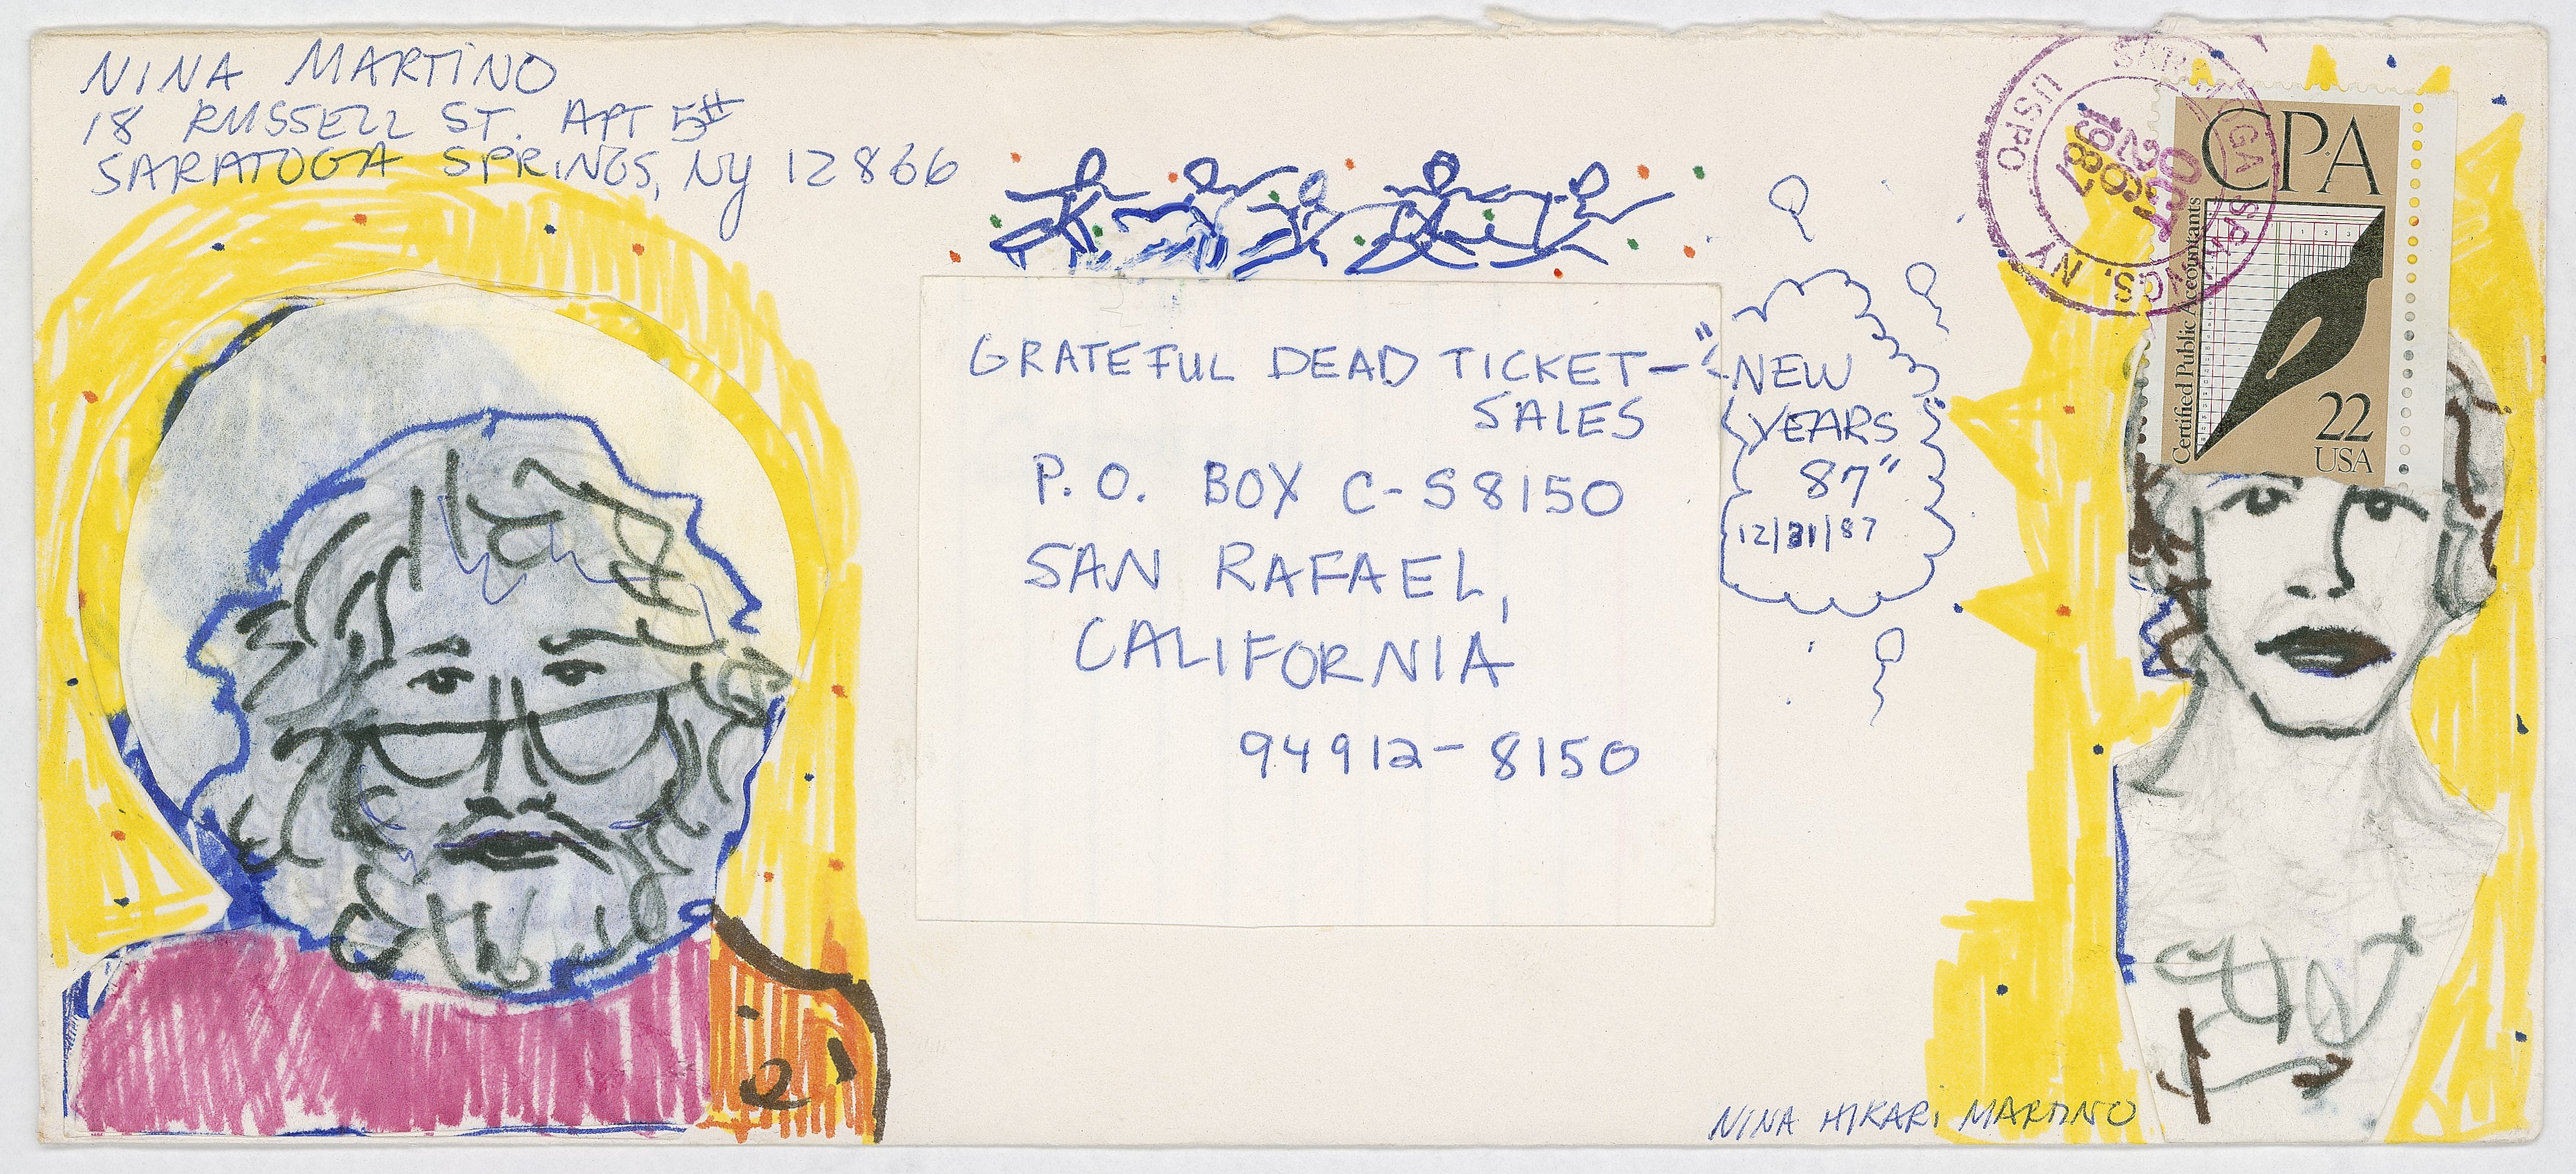 NINA MARTINO
18 RUSSELL ST. APT 5#
SARATOGA SPRINGS, NY 12866
GRATEFUL DEAD TICKET-
SALES
P.O. BOX C-S8150
SAN RAFAEL,
CALIFORNIA
94912-8150
"NEW
YEARS
87"
12/31/87
SARATOGA SPRINGS, NY
USPO
OCT
26
1987
CPA
Certified Public Accountants
22
USA
NINA HIKARI MARTINO